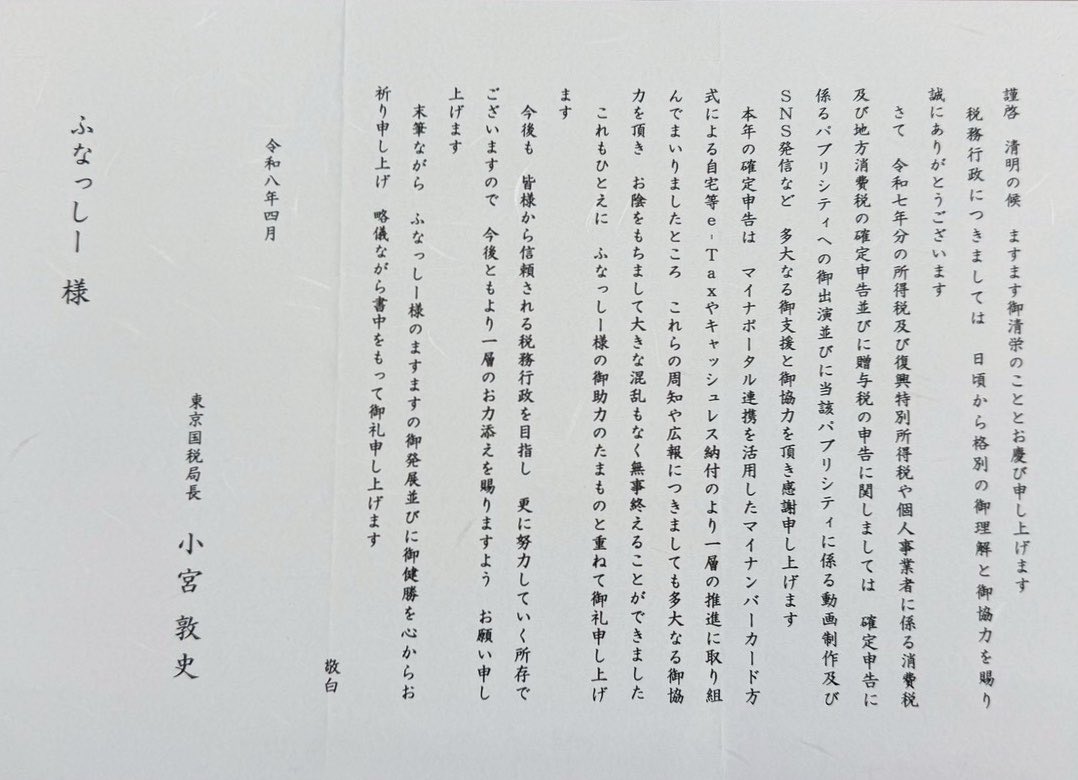 謹啓　清明の候　ますます御清栄のこととお慶び申し上げます
税務行政につきましては　日頃から格別の御理解と御協力を賜り
誠にありがとうございます
さて　令和七年分の所得税及び復興特別所得税や個人事業者に係る消費税
及び地方消費税の確定申告並びに贈与税の申告に関しましては　確定申告に
係るパブリシティへの御出演並びに当該パブリシティに係る動画制作及び
ＳＮＳ発信など　多大なる御支援と御協力を頂き感謝申し上げます
本年の確定申告は　マイナポータル連携を活用したマイナンバーカード方
式による自宅等ｅ‐Ｔａｘやキャッシュレス納付のより一層の推進に取り組
んでまいりましたところ　これらの周知や広報につきましても多大なる御協
力を頂き　お陰をもちまして大きな混乱もなく無事終えることができました
これもひとえに　ふなっしー様の御助力のたまものと重ねて御礼申し上げ
ます
今後も　皆様から信頼される税務行政を目指し　更に努力していく所存で
ございますので　今後ともより一層のお力添えを賜りますよう　お願い申し
上げます
末筆ながら　ふなっしー様のますますの御発展並びに御健勝を心からお
祈り申し上げ　略儀ながら書中をもって御礼申し上げます
敬白
令和八年四月
東京国税局長　小宮　敦史
ふなっしー　様